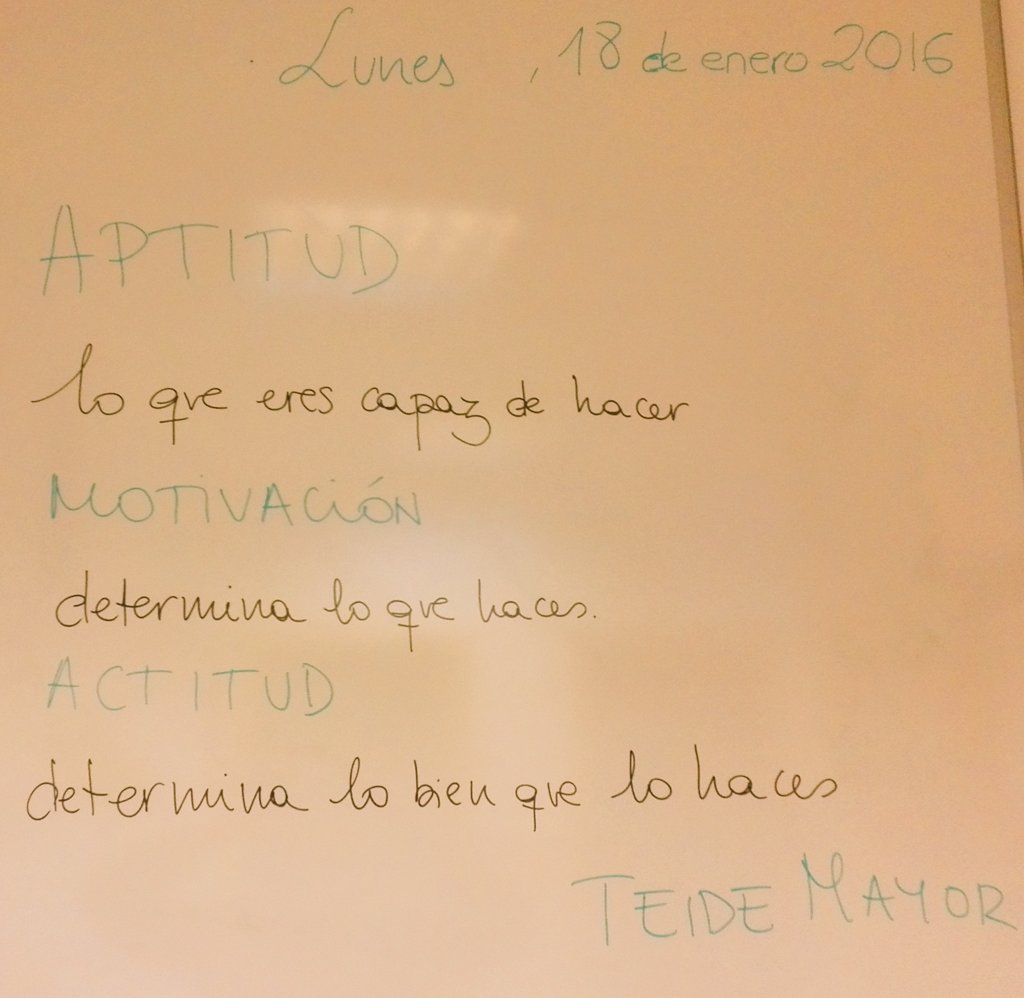 Lunes, 18 de enero 2016
APTITUD
lo que eres capaz de hacer
MOTIVACIÓN
determina lo que haces.
ACTITUD
determina lo bien que lo haces
TEIDE MAYOR